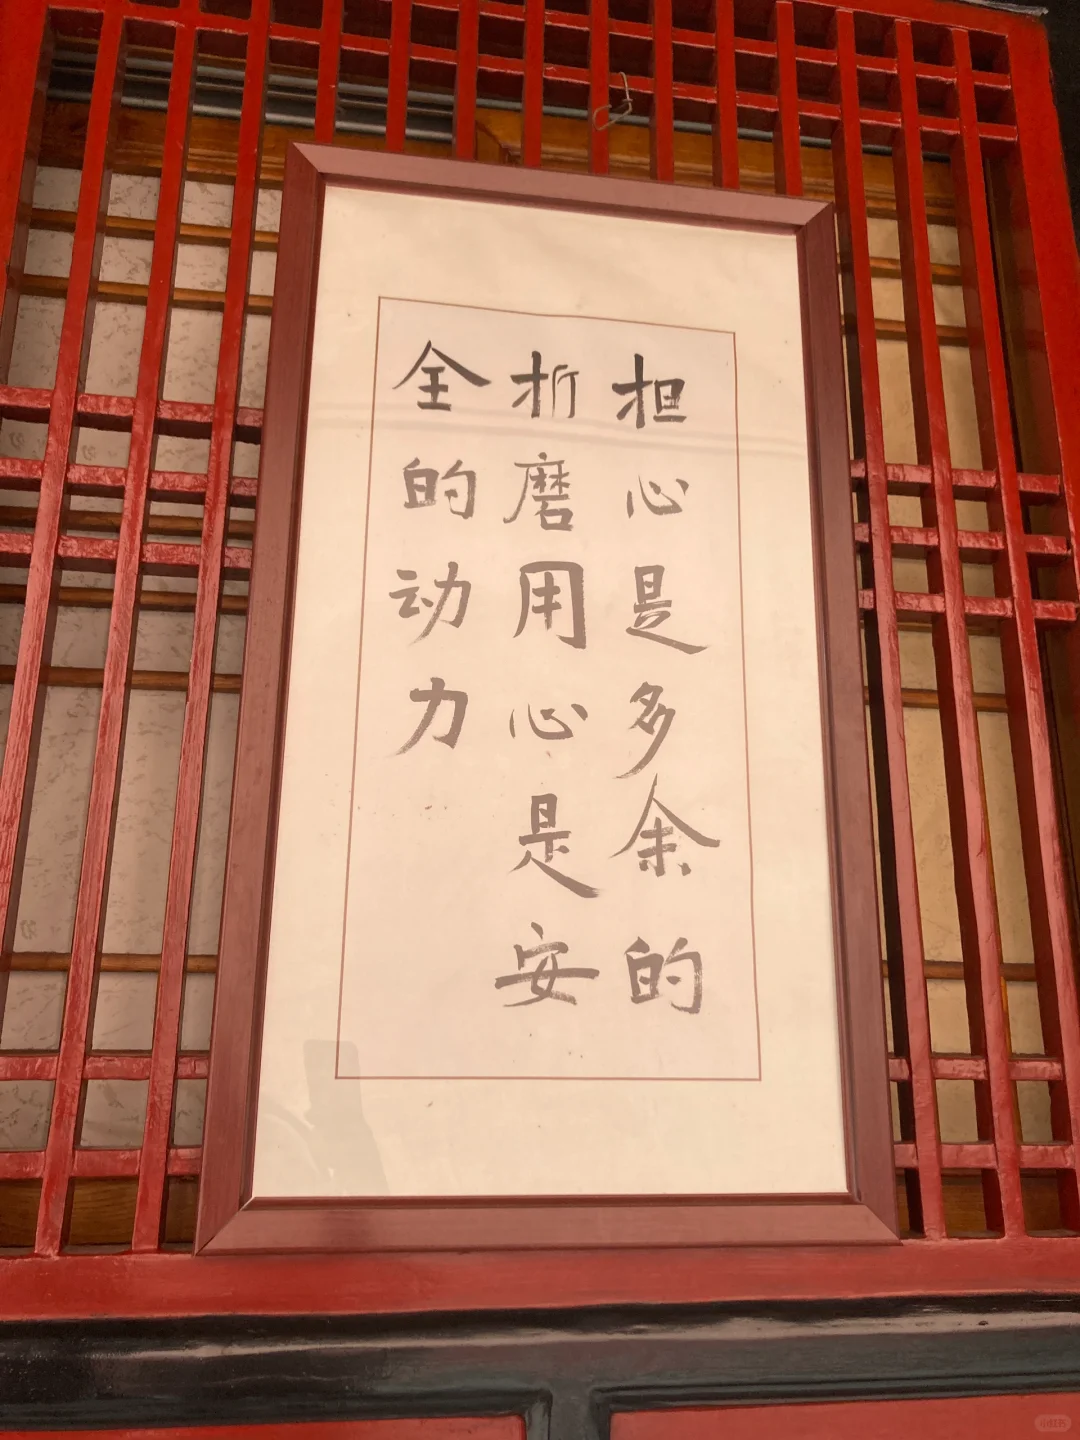 担心是多余的
折磨用心是安
全的动力
小红书